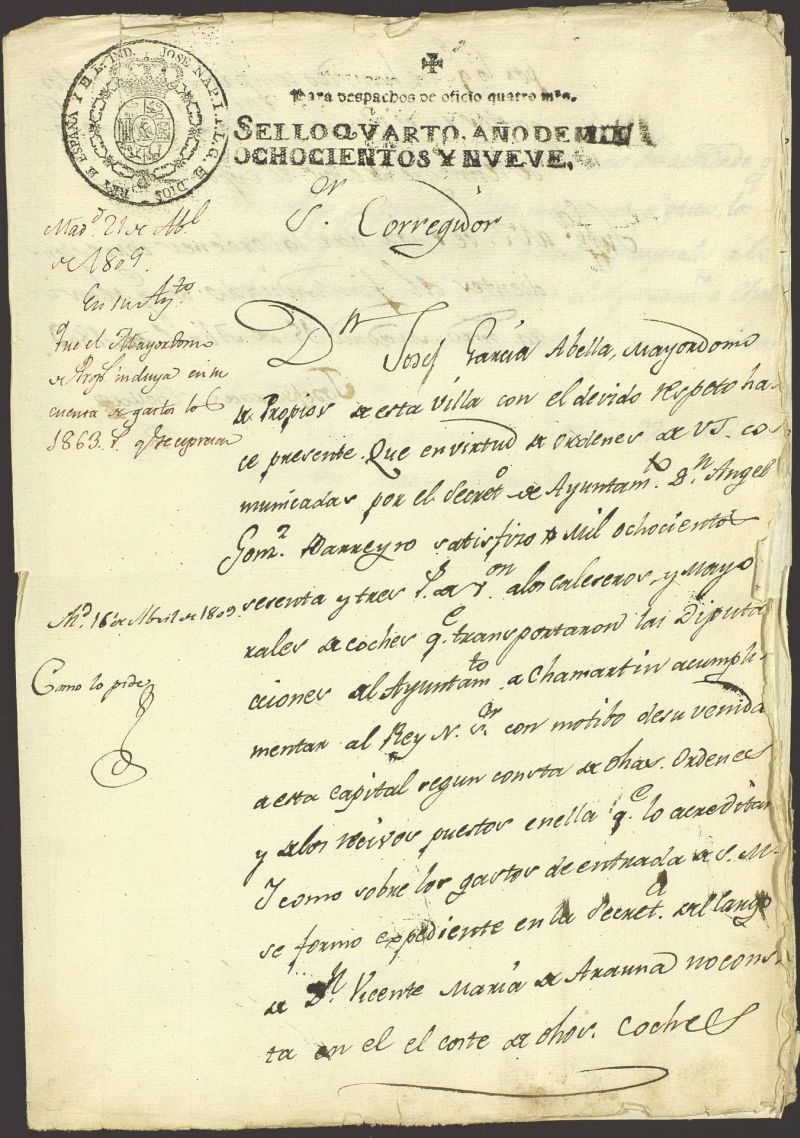 JOSE NAP. I. P. L. G. D. DIOS REY D ESPAÑA Y D L. IND.
Para despachos de oficio quatro mrs.
SELLO QVARTO, AÑO DE MIL
OCHOCIENTOS Y NVEVE.
S.or Corregidor
Mad.d 21 de Ab.l
de 1809.
En su Ay.to
Que el Mayordomo
de Prop.s induya en su
cuenta de gastos los
1863. r.s q.e se expresan
Md. 16 de Abril de 1809.
Como lo pide
D.n Josef García Abella, Mayordomo
de Propios de esta Villa con el devido respeto ha-
ce presente. Que en virtud de ordenes de VS. co-
municadas por el Secret.o de Ayuntam.to D.n Angel
Gom.z Barreyro satisfizo Mil ochocientos
sesenta y tres r.s de v.on a los caleseros, y Mayo
rales de coches q.e transportaron las Diputa
ciones del Ayuntam.to a Chamartin a cumpli-
mentar al Rey N. S.or con motibo de su venida
a esta capital segun consta de dhas. Ordenes
y de los recivos puestos en ella q.e lo acreditan
Y como sobre los gastos de entrada de S. M.
se formo expediente en la Secret.a del cargo
de D.n Vicente María de Arauna no cons-
ta en el el coste de dhos. coches